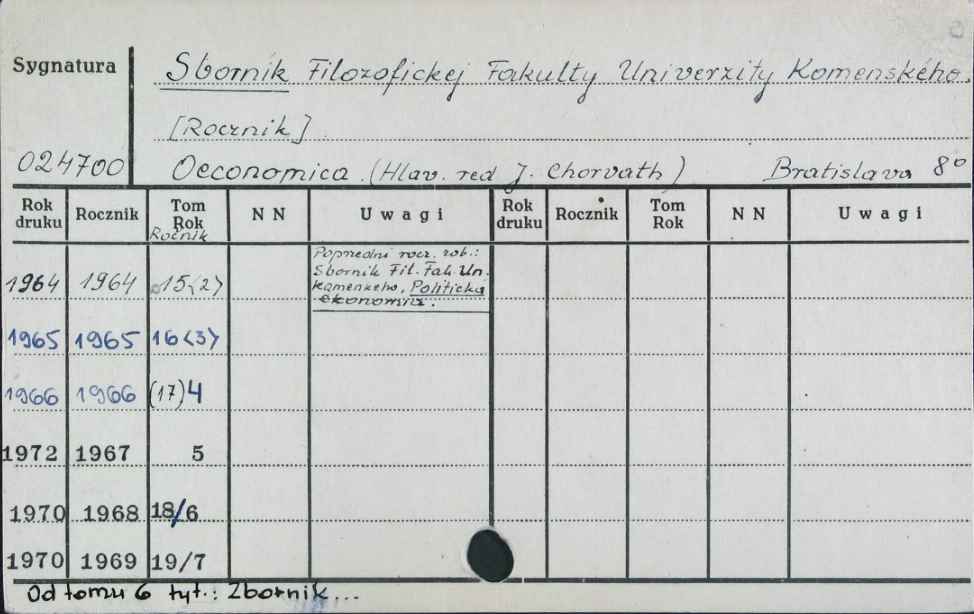 Sygnatura
Sborník Filozofickej Fakulty Univerzity Komenského.
[Rocznik]
024700 Oeconomica. (Hlav. red J. Chorvath) Bratislava 8°
Rok druku Rocznik Tom Rok Ročník NN Uwagi Rok druku Rocznik Tom Rok NN Uwagi
Poprzedni rocz. zob.:
Sborník Fil. Fak. Un.
Komenkeho. Politická
ekonomia.
1964 1964 15<2>
1965 1965 16<3>
1966 1966 (17)4
1972 1967 5
1970 1968 18/6
1970 1969 19/7
Od tomu 6 tyt.: Zborník...